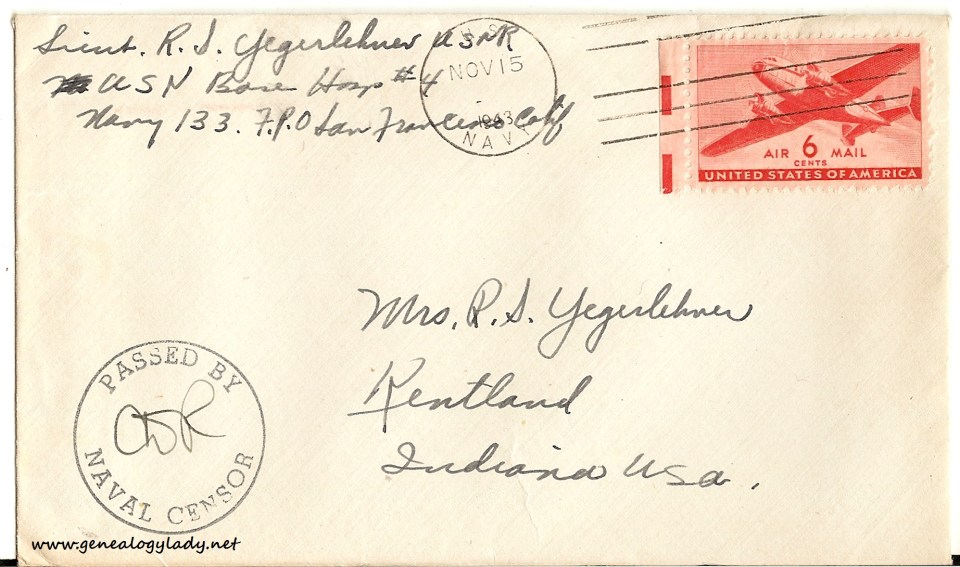 Lieut. R. S. Yegerlehner USNR
USN Base Hosp #4
Navy 133. F.P.O San Francisco Calif
U.S.
NOV 15
1943
NAVY
AIR 6 MAIL
CENTS
UNITED STATES OF AMERICA
Mrs. R. S. Yegerlehner
Kentland
Indiana USA.
PASSED BY
CDR
NAVAL CENSOR
www.genealogylady.net